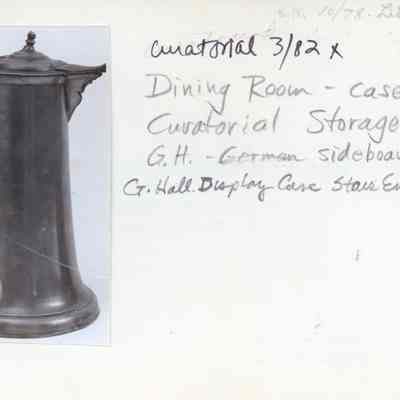 10/78.
curatorial 3/82 x
Dining Room - case
Curatorial Storage
G.H. - German sideboa
G. Hall Display Case Stairs En